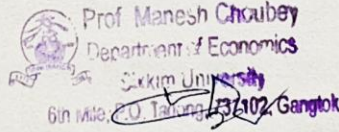 Prof Manesh Choubey
Department of Economics
Sikkim University
6th Mile, P.O. Tadong 737102, Gangtok